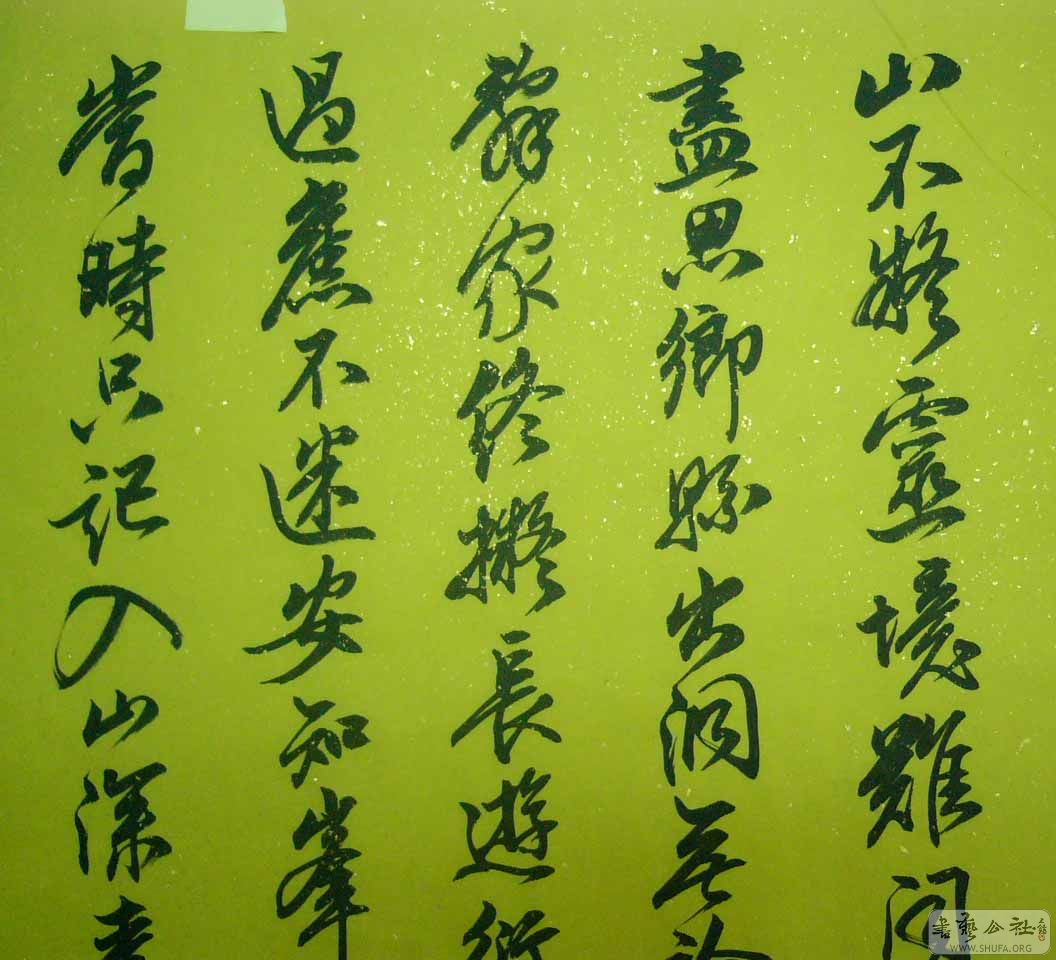 山不疑靈境難聞
盡思鄉縣出洞無論
辭家終擬長遊衍
過舊不迷安知峯
當時只記入山深青
書藝公社
WWW.SHUFA.ORG